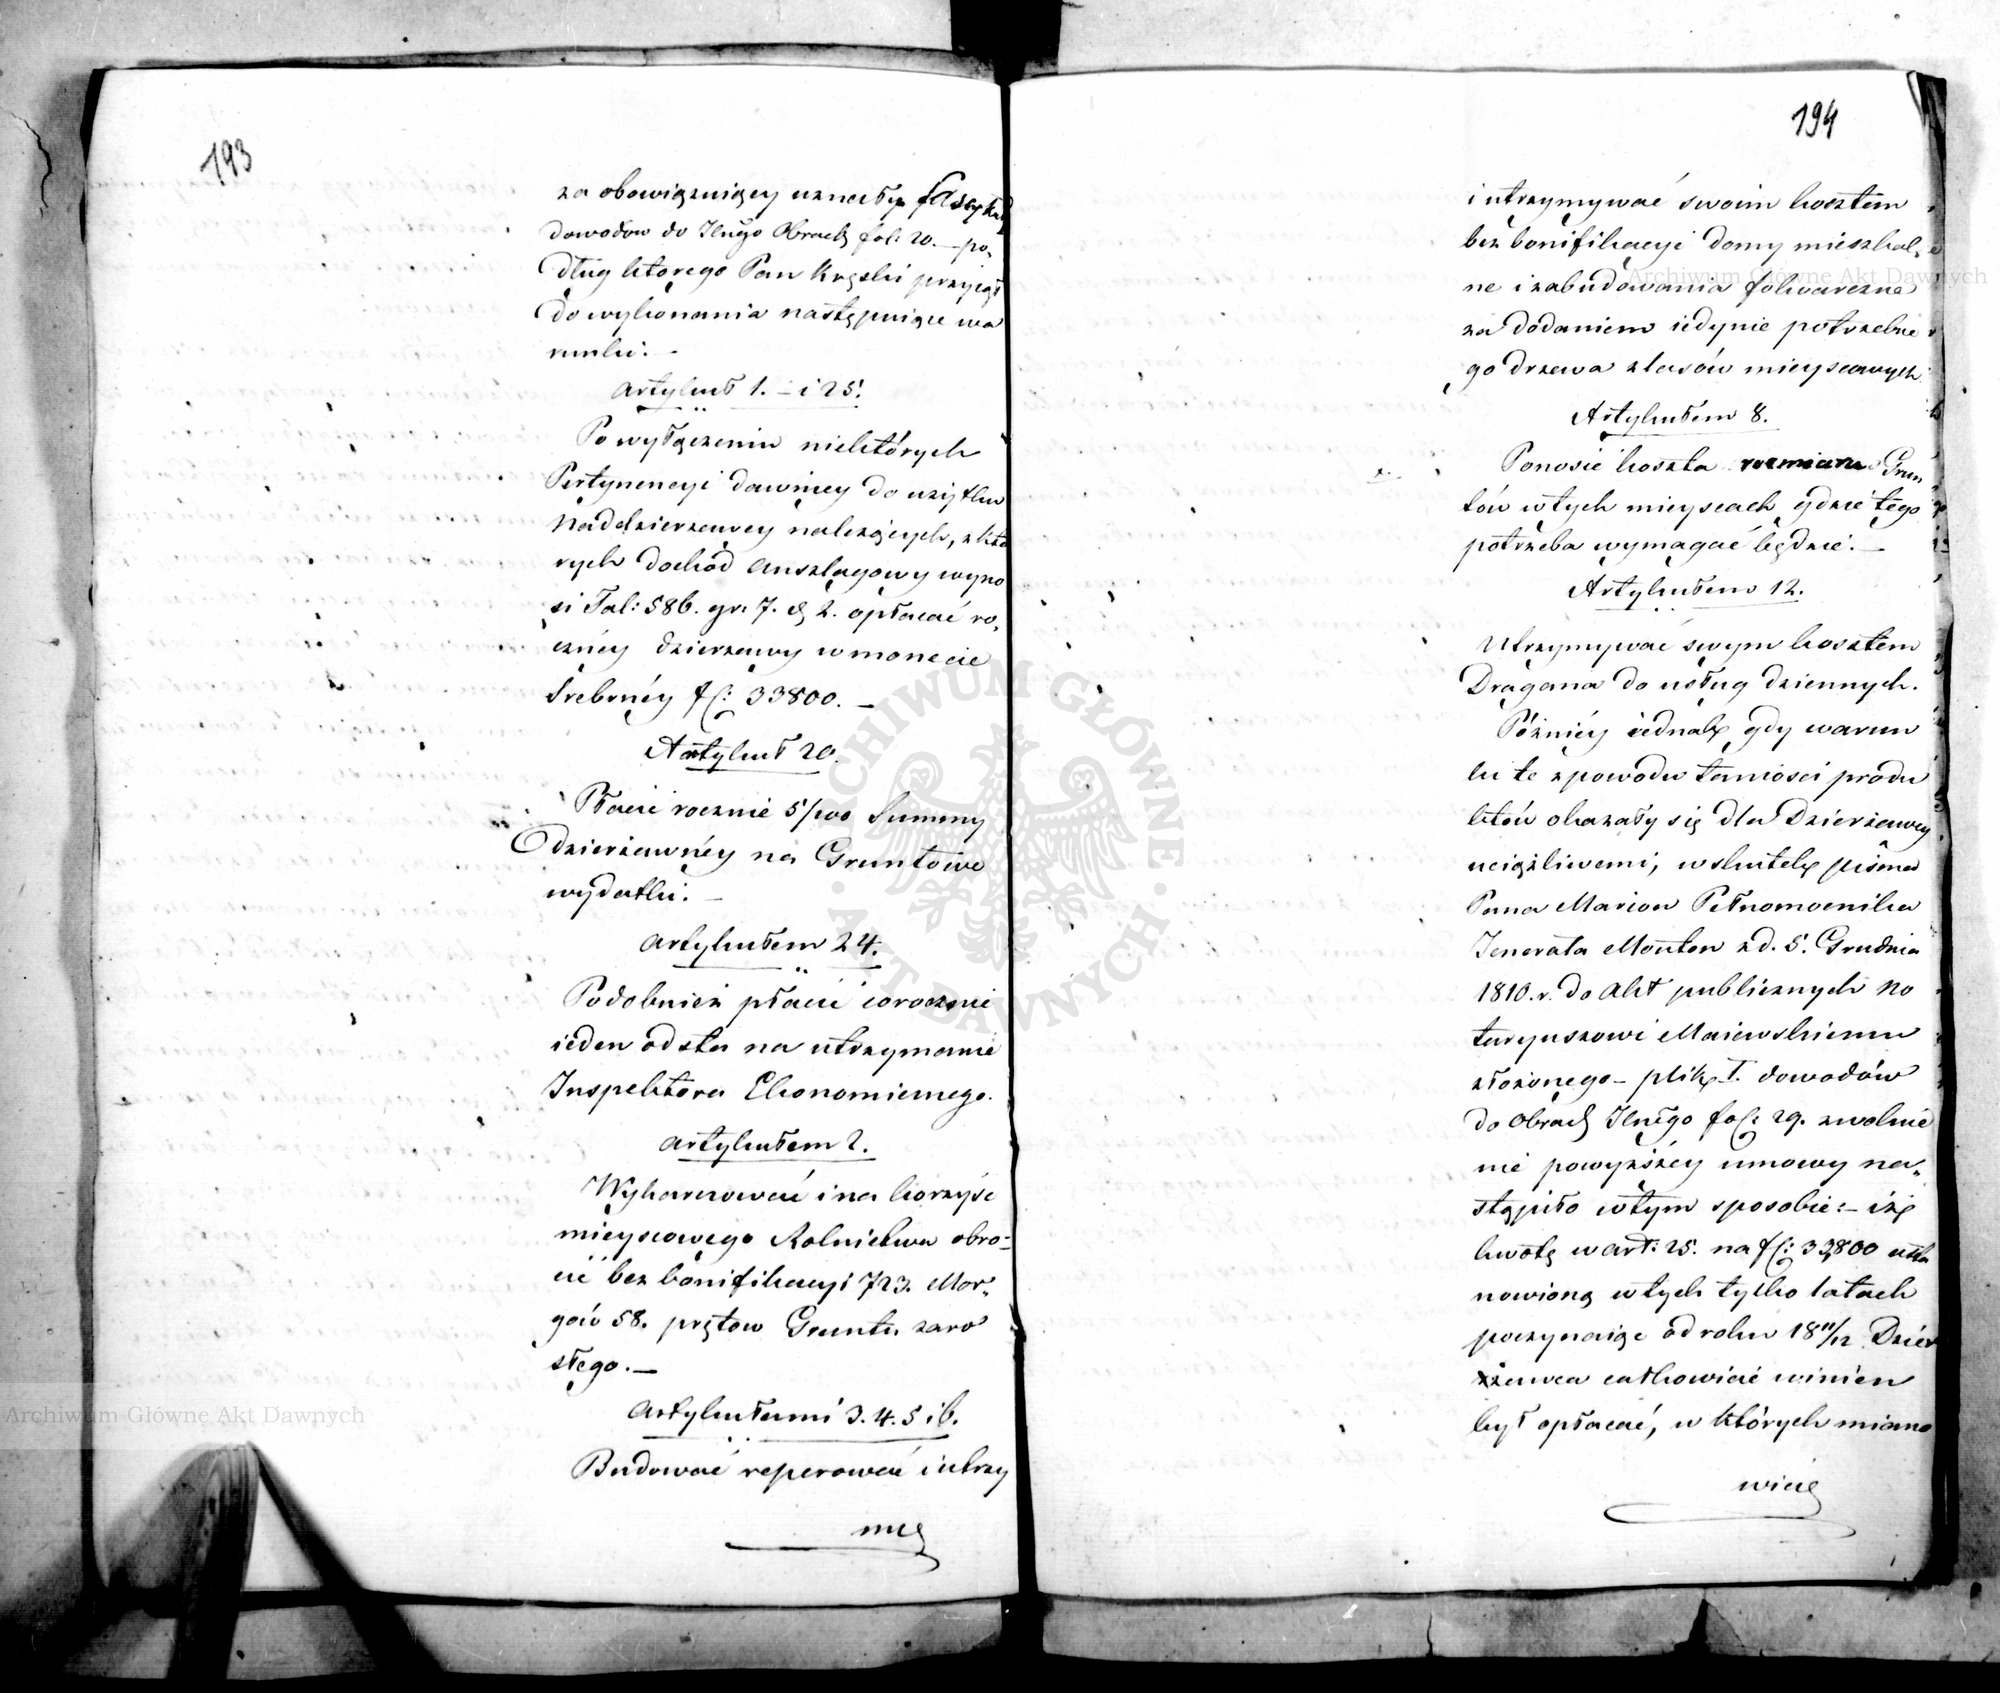 193
za obowięznięcy uznały fascykuł
dowodow do Ilnego Obrach fol: 20. — po„
dług ktorego Pan Kręski przyiął
do wykonania następuiące wa
runki: —
Artykuł 1. – i 25.
Po wyłączeniu niektórych
Pertynencyi dawniey do użytku
Naddzierzawcy należących, z któ
rych dochód anszlagowy wyno
si Tal: 586. gr. 7. 2. opłacać ro„
czney dzierzawy w monecie
Srebrnéy f: 33800. —
Artykuł 20.
Płacić rocznie 5/100 Summy
dzierżawnéy na Gruntowe
wydatki: —
Artykułem 24.
Podobnież płacić corocznie
ieden od sta na utrzymanie
Inspektora Ekonomicznego.
Artykułem 2.
Wykarczować i na korzyść
mieyscowego Rolnictwa obro=
cić bez bonifikacyi 723. Mor„
gów 58. prętow Gruntu zaro
słego. —
Artykułami 3. 4. 5 i 6.
Budować reperować i utrzy
my
194
i utrzymywać swoim kosztem
bez bonifikacyi domy mieszkal„
ne i zabudowania folwarczne
za dodaniem iedynie potrzebne
go drzewa z lasów mieyscowych
Artykułem 8.
Ponosić koszta rozmiaru Grun
tów w tych mieyscach gdzie tego
potrzeba wymagać będzie. —
Artykułem 12.
Utrzymywać swym kosztem
Dragana do usług dziennych.
Póżniéy iednak gdy warun
ki te z powodu taniosci produ
któw okazały się dla Dzierżawcy
uciążliwemi, w skutek pisma
Pana Marion Pełnomocnika
Jenerała Mouton z d. 5. Grudnia
1810. r. do akt publicznych No
taryuszowi Maiewskiemu
złożonego – plik I. dowodów
do Obrach Ilnego fol: 29. zwolnie
nie powyższéy umowy na„
stąpiło w tym sposobie: – iż
kwotę w art: 25. na f: 33,800 usta
nowioną w tych tylko latach
poczynaiąc od roku 18 11/12 Dzier
żawca całkowicie winien
był opłacać, w których miano
wicie
Archiwum Główne Akt Dawnych
Archiwum Główne Akt Dawnych
ARCHIWUM GŁÓWNE · AKT DAWNYCH ·